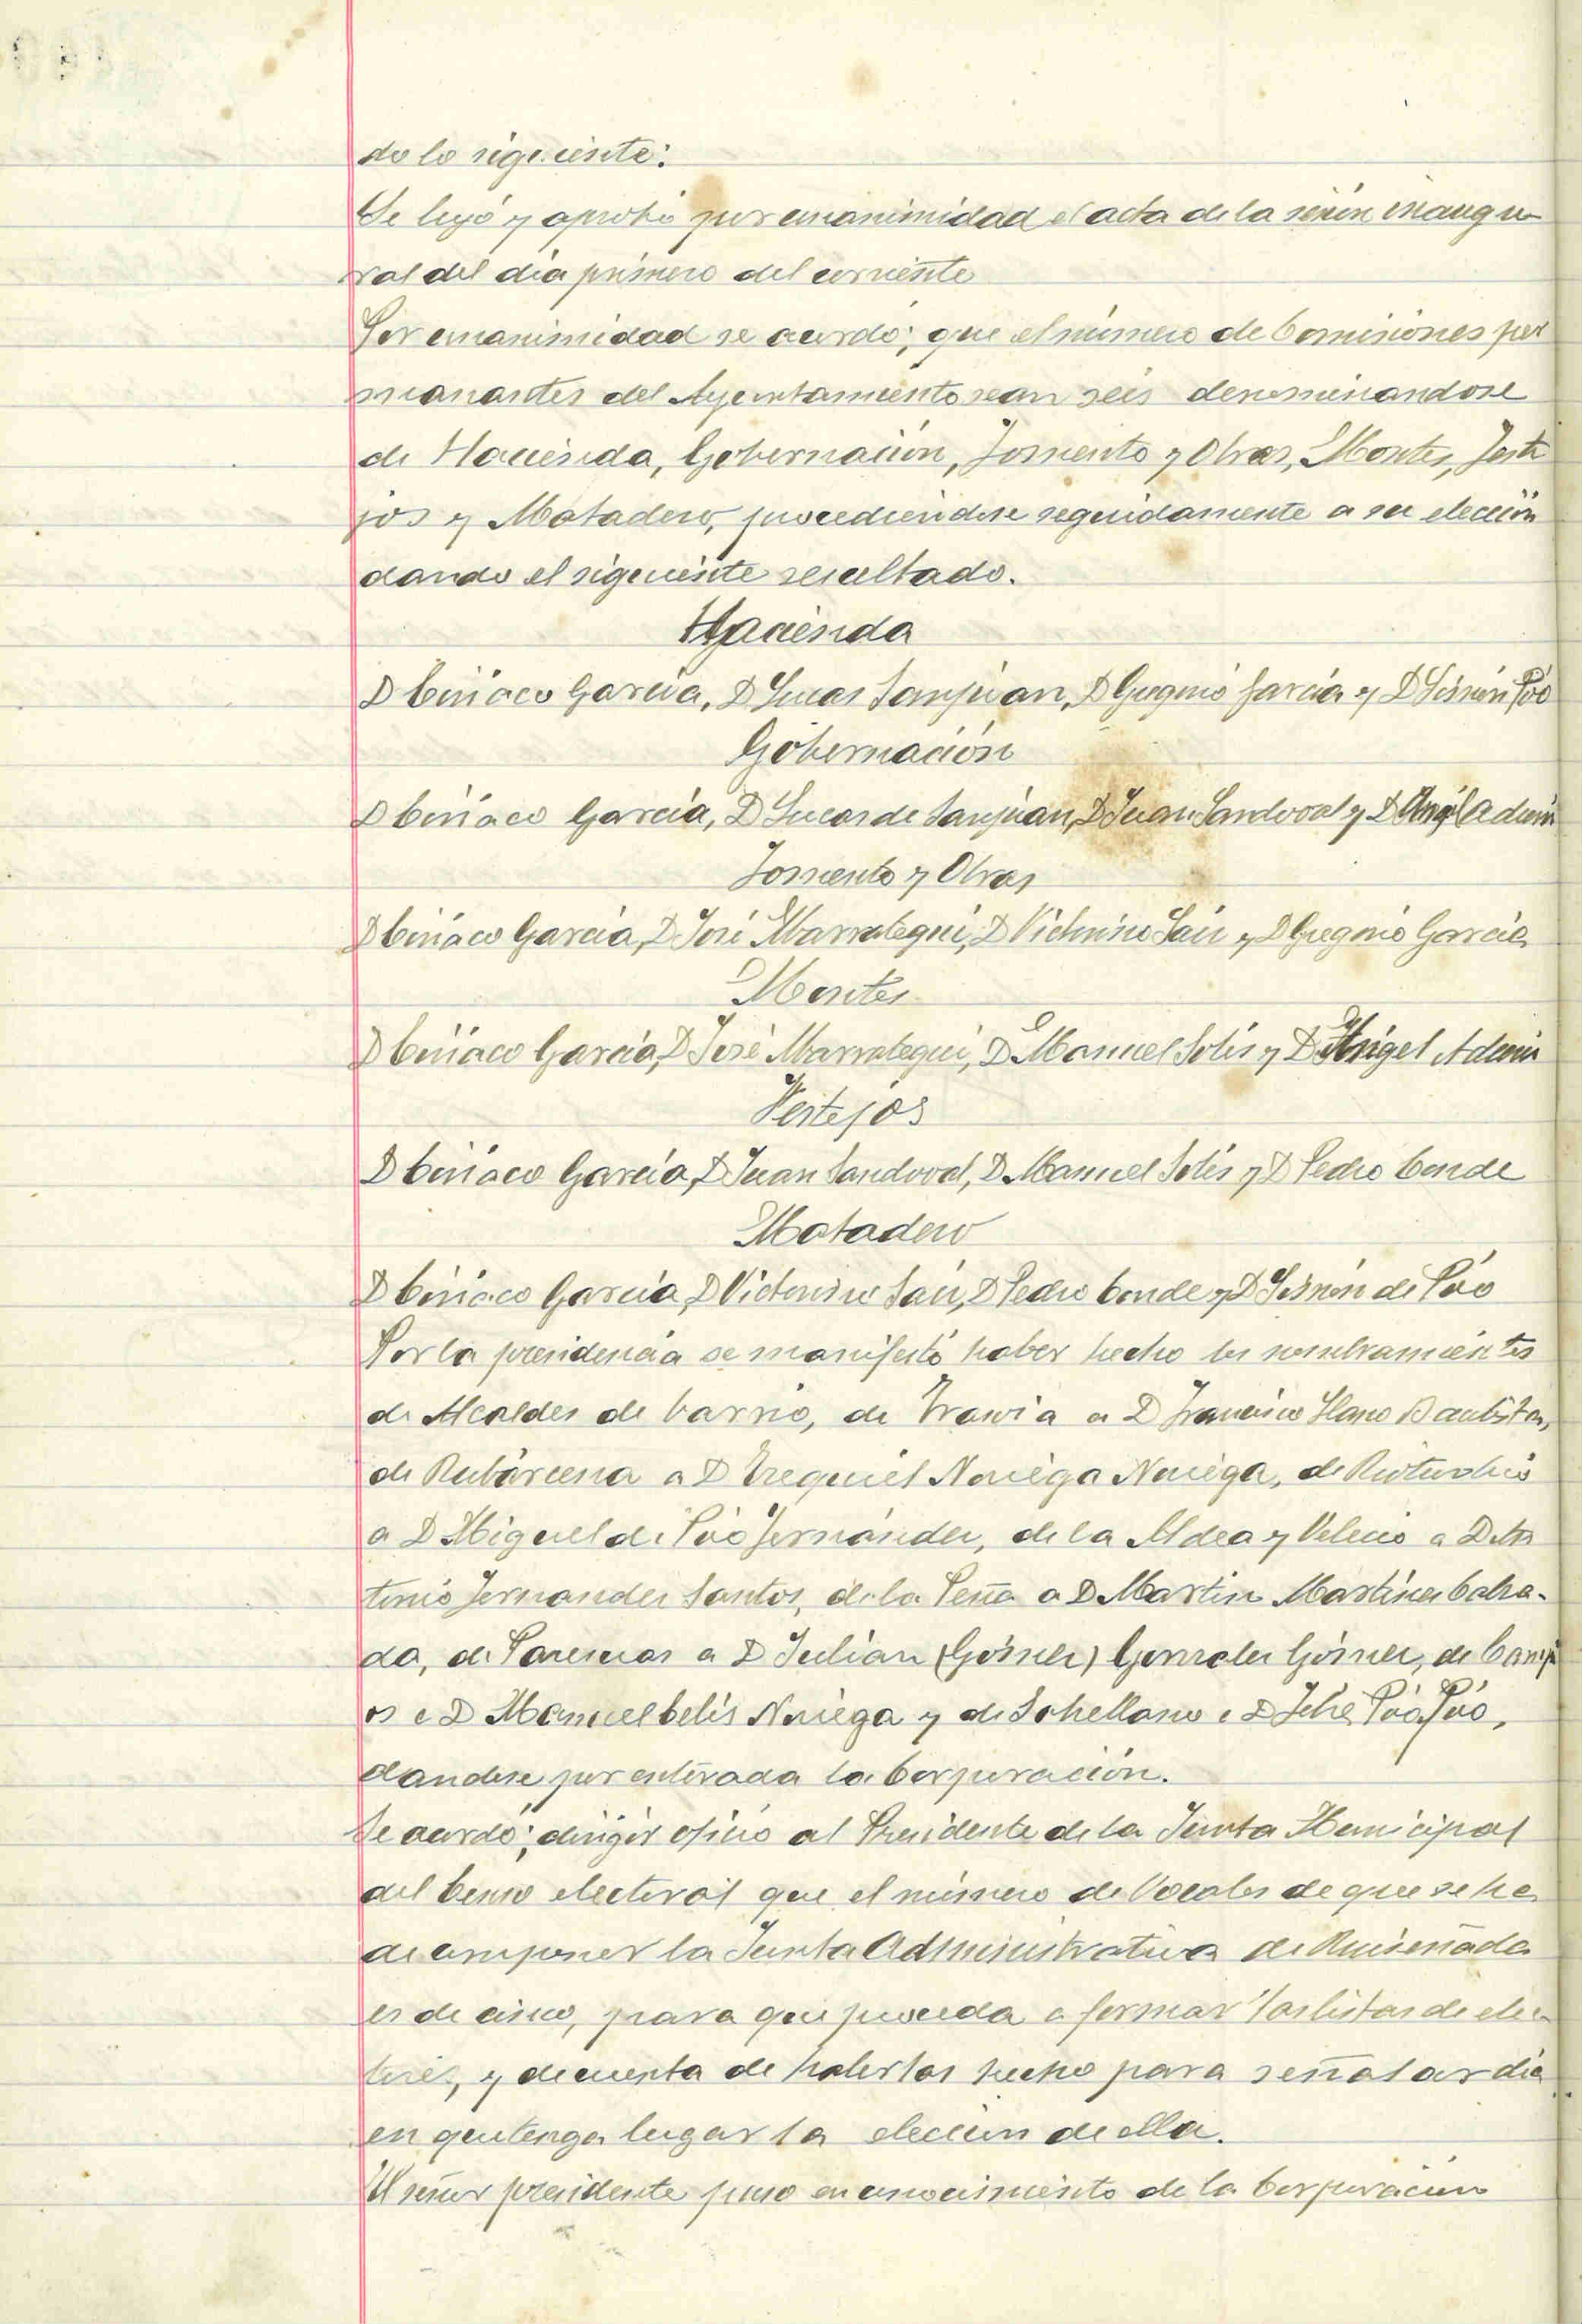 do lo siguiente:
Se leyó y aprobó por unanimidad el acta de la sesión inaugu-
ral del día primero del corriente
Por unanimidad se acordó; que el número de Comisiones per
manantes del Ayuntamiento sean seis denominandose
de Hacienda, Gobernación, Fomento y Obras, Montes, Feste
jos y Matadero, procediendose seguidamente a su elección
dando el siguiente resultado.
Hacienda
D Ciriaco García, D Lucas Sanjuan, D Gregorio García y D Simón Póo
Gobernación
D Ciriaco García, D Lucas de Sanjuan, D Juan Sandoval y D Angel
Fomento y Obras
D Ciriaco García, D José Marrategui, D Victorino Saiz y D Gregorio García
Montes
D Ciriaco García, D José Marrategui, D Manuel Solis y D Angel
Festejos
D Ciriaco García, D Juan Sandoval, D Manuel Solis y D Pedro Conde
Matadero
D Ciriaco García, D Victorino Saiz, D Pedro Conde y D Simón de Póo
Por la presidencia se manifestó haber hecho los nombramientos
de Alcaldes de barrio, de a D Francisco Llano Bautista,
de Rubárcena a D Ezequiel Noriega Noriega, de
a D Miguel de Póo Fernández, de la Aldea y Velecio a D An
tonio Fernandez Santos, de la Peña a D Martin Martinez Calza-
da, de Paresuas a D Julian (Gómez) Gonzalez Gómez, de Camp
os a D Manuel Celis Noriega y de a D Póo Póo,
dandose por enterada la Corporación.
Se acordó; dirigir oficio al Presidente de la Junta Municipal
del Censo electoral que el número de Vocales de que se ha
de componer la Junta Administrativa de Ruiseñada
es de cinco, para que proceda a formar las listas de elec-
tores, y de cuenta de haberlas hecho para señalar día
en que tenga lugar la elección de ella.
El señor presidente puso en conocimiento de la Corporación